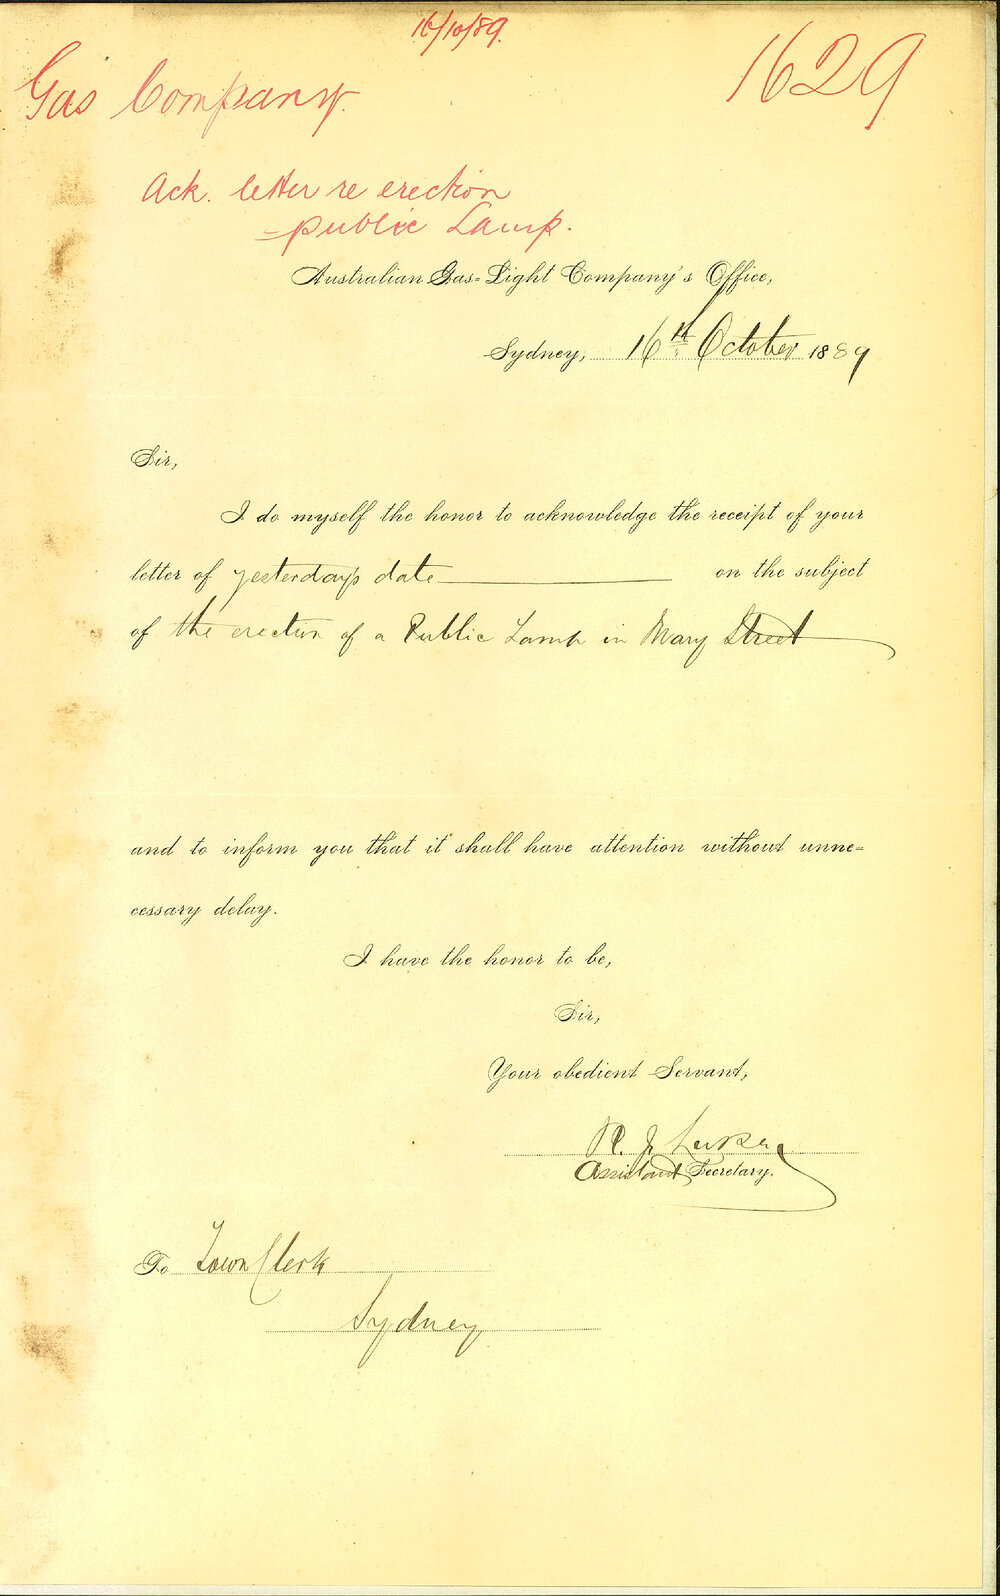 16/10/89.
1629
Gas Company.
Ack. letter re erection
public Lamp.
Australian Gas-Light Company's Office,
Sydney, 16th October 1889
Sir,
I do myself the honor to acknowledge the receipt of your
letter of yesterday's date on the subject
of the erection of a Public Lamp in Mary Street
and to inform you that it shall have attention without unne=
cessary delay.
I have the honor to be,
Sir,
Your obedient Servant,
R. J. 
Assistant Secretary.
To Town Clerk
Sydney